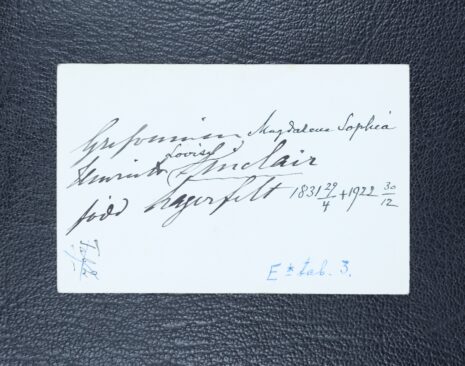 Grefvinnan Magdalena Sophia
Henrietta Lovisa Sinclair
född Lagerfelt 1831 29/4 +1922 30/12
E* tab. 3.